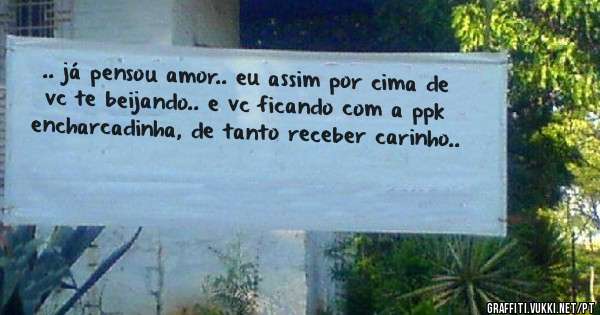 .. já pensou amor.. eu assim por cima de
vc te beijando.. e vc ficando com a ppk
encharcadinha, de tanto receber carinho..
GRAFFITI.VUKKI.NET/PT